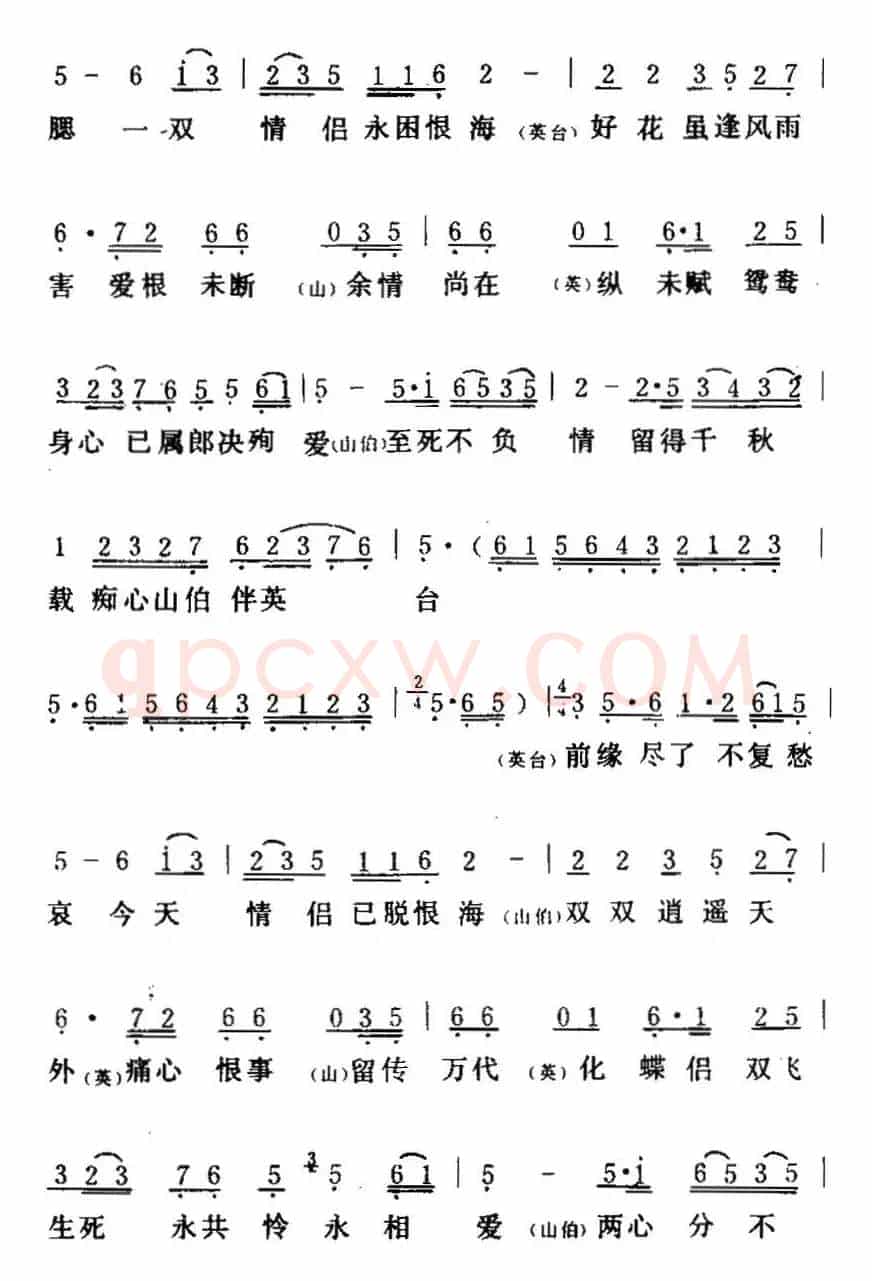 5 - 6 i 3 | 2 3 5 1 1 6 2 - | 2 2 3 5 2 7 |
腮 一 双 情 侣 永 困 恨 海 (英台) 好 花 虽 逢 风 雨
6 · 7 2 6 6 0 3 5 | 6 6 0 1 6 · 1 2 5 |
害 爱 根 未 断 (山) 余 情 尚 在 (英) 纵 未 赋 鸳 鸯
3 2 3 7 6 5 5 6 1 | 5 - 5 · i 6 5 3 5 | 2 - 2 · 5 3 4 3 2 |
身 心 已 属 郎 决 殉 爱 (山伯) 至 死 不 负 情 留 得 千 秋
1 2 3 2 7 6 2 3 7 6 | 5 · ( 6 1 5 6 4 3 2 1 2 3 |
载 痴 心 山 伯 伴 英 台
qpcxw.COM
5 · 6 1 5 6 4 3 2 1 2 3 | 2/4 5 · 6 5 ) | 4/4 3 5 · 6 1 · 2 6 1 5 |
(英台) 前 缘 尽 了 不 复 愁
5 - 6 i 3 | 2 3 5 1 1 6 2 - | 2 2 3 5 2 7 |
哀 今 天 情 侣 已 脱 恨 海 (山伯) 双 双 逍 遥 天
6 · 7 2 6 6 0 3 5 | 6 6 0 1 6 · 1 2 5 |
外 (英) 痛 心 恨 事 (山) 留 传 万 代 (英) 化 蝶 侣 双 飞
3 2 3 7 6 5 3 5 6 1 | 5 - 5 · i 6 5 3 5 |
生 死 永 共 怜 永 相 爱 (山伯) 两 心 分 不